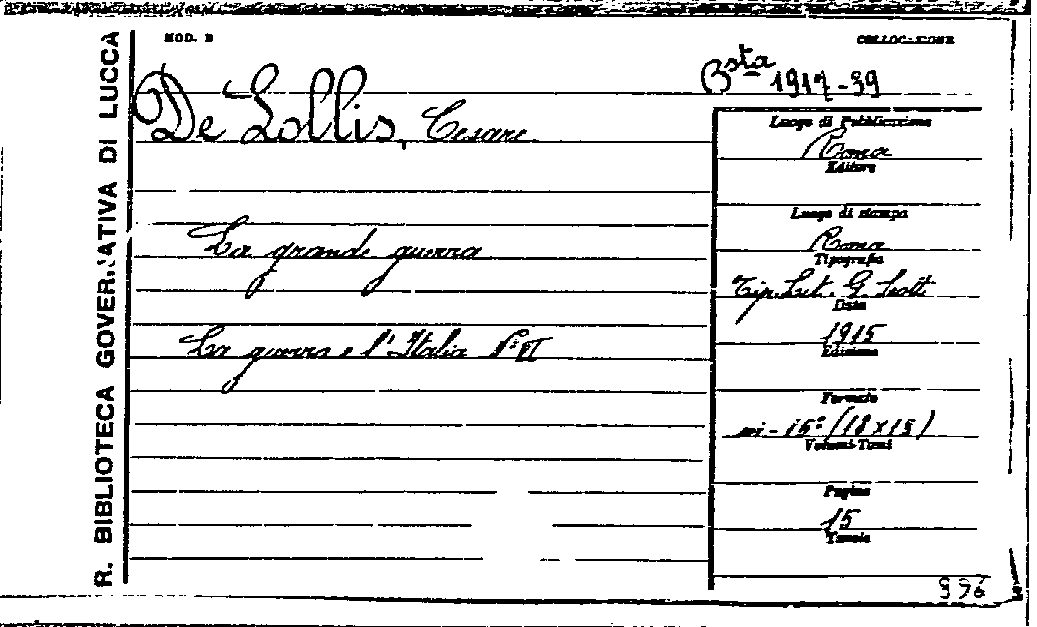 R. BIBLIOTECA GOVERNATIVA DI LUCCA
MOD. B
COLLOCAZIONE
Bsta 1917-39
De Lollis, Cesare
Luogo di Pubblicazione
Roma
Editore
Luogo di stampa
La grande guerra
Roma
Tipografia
Tip. Lit. G.
Data
La guerra e l'Italia
1915
Edizione
Formato
in-16° (18x15)
Volumi-Tomi
Pagine
15
Tavole
996